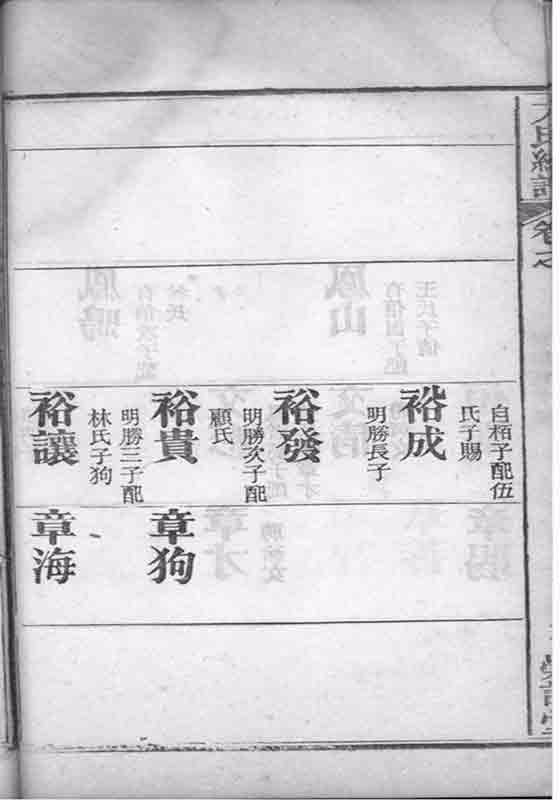 卷之
自栢子配伍
氏子賜
裕成
明勝長子
裕發
明勝次子配
顧氏
裕貴
明勝三子配
林氏子狗
裕讓
章狗
章海